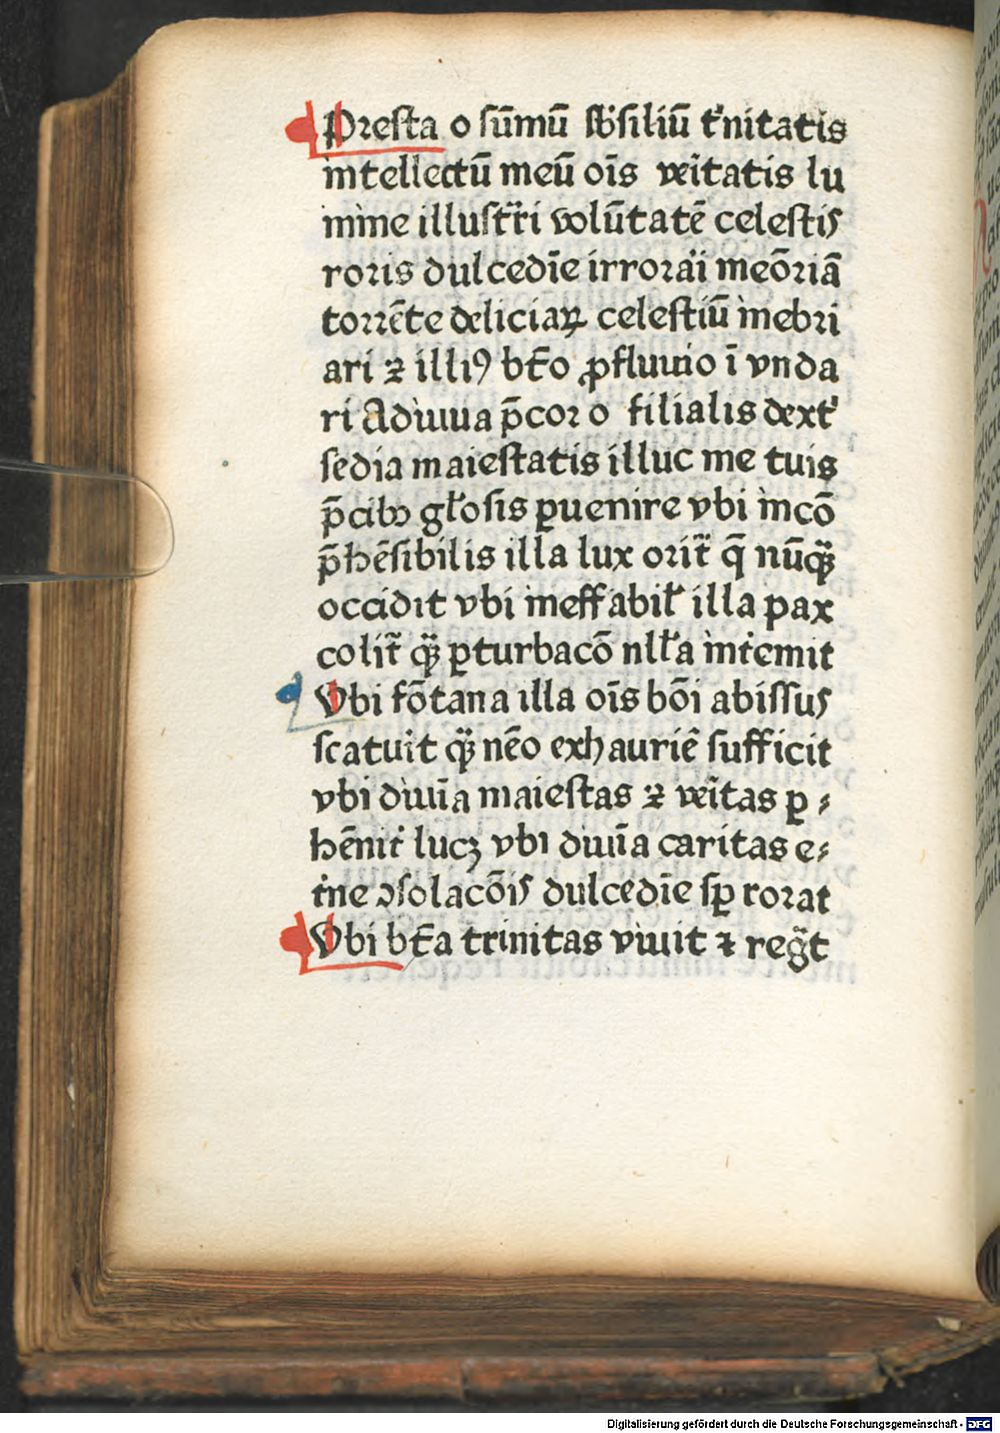 Presta o sūmū ꝯſiliū t'nitatis
intellectū meū oīs veītatis lu
mine illuſtr̄i volūtatē celeſtis
roris dulcedīe irrorai meōriā
torrēte deliciaꝝ celeſtiū inebri
ari ⁊ illiꝰ btō ꝓfluuio ī vnda
ri Adiuua p̄cor o filialis dext'
ſedia maieſtatis illuc me tuis
p̄cibꝫ gl'oſis ꝑuenire vbi incō
p̄hēſibilis illa lux orit̄ q̄ nūqꝫ
occidit vbi ineffabil' illa pax
colit̄ qꝫ ꝑturbacō nll'a int̄emit
Vbi fōtana illa oīs bōi abiſſus
ſcatuit qꝫ nēo exhauriē ſufficit
vbi diuīa maieſtas ⁊ veītas ꝑ
hēnit lucꝫ vbi diuīa caritas e
t̄ne ꝯſolacōis dulcedīe ſꝑ rorat
Vbi bt̄a trinitas viuit ⁊ regt
Digitalisierung gefördert durch die Deutsche Forschungsgemeinschaft - DFG